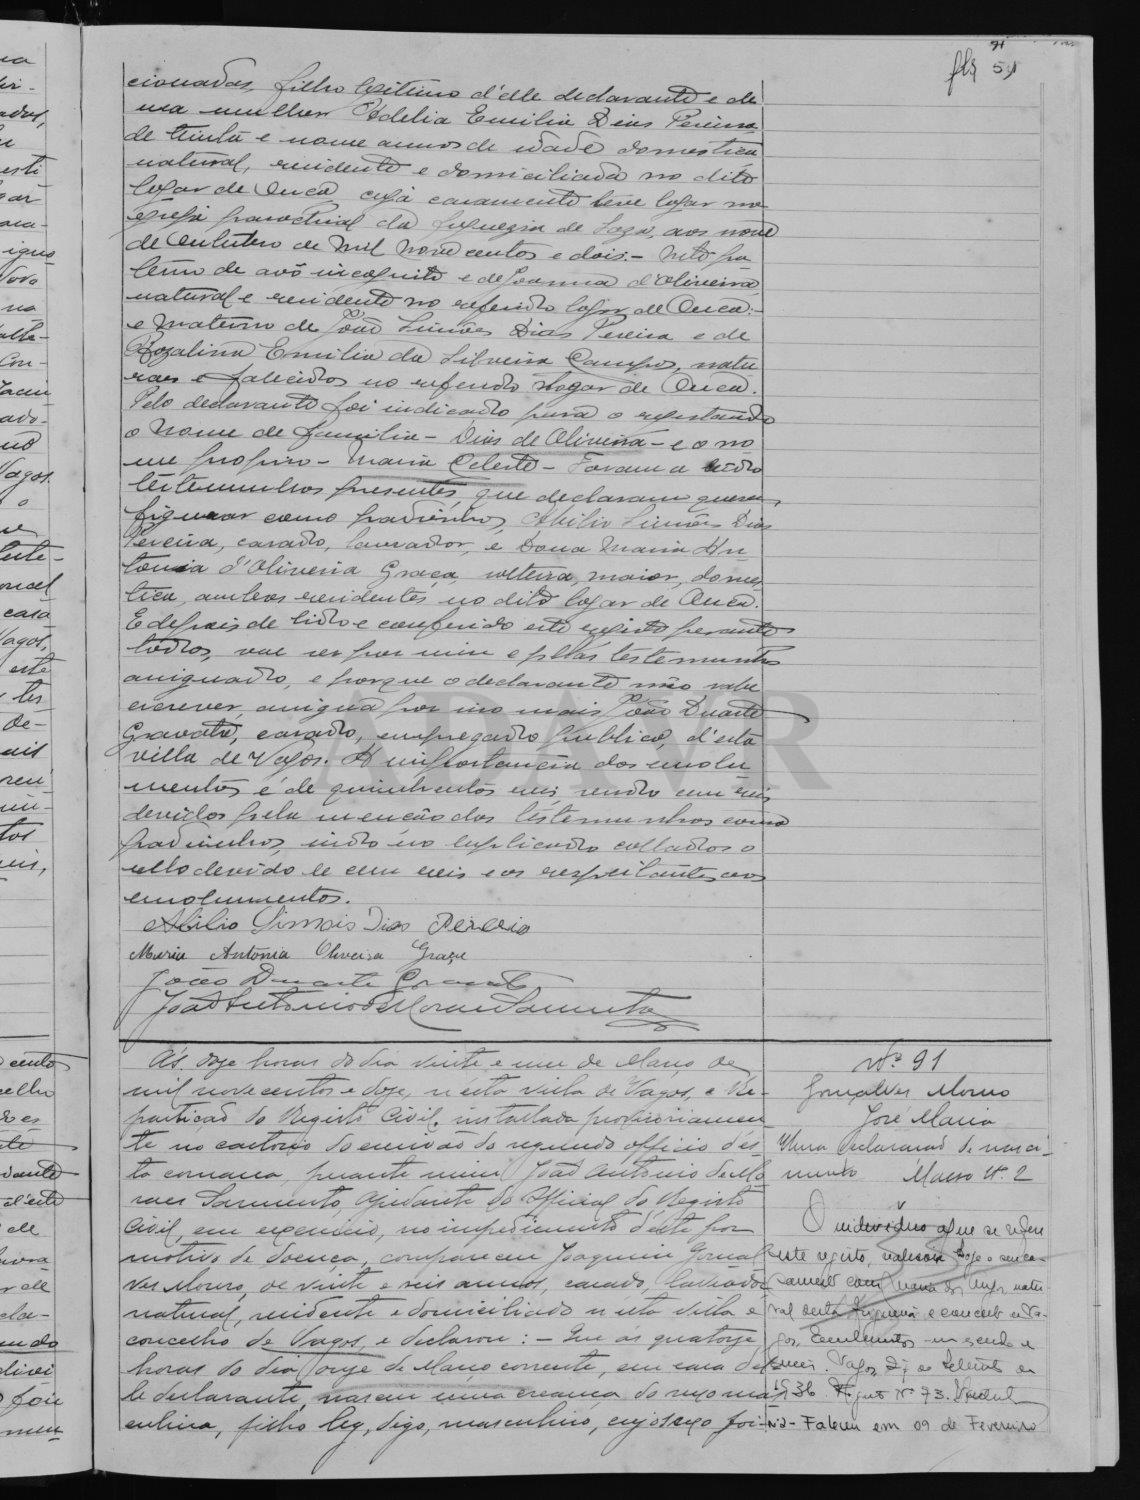 fls 51
cionadas, filho legitimo d'elle declarante e de
sua mulher Adelia Emilia Dias Pereira
de trinta e nove annos de idade domestica
natural, residente e domiciliada no dito
logar de Ouca cujo casamento teve logar na
egreja parochial da freguezia de Soza, aos nove
de Outubro de mil nove centos e dois. - Neto pa
terno de avô incognito e de Joanna d'Oliveira
natural e residente no referido logar de Ouca: -
e materno de João Simões Dias Pereira e de
Rozalina Emilia da Silveira Campos, natu
raes e falecidos no referido logar de Ouca.
Pelo declarante foi indicado para o registando
o nome de familia - Dias de Oliveira - e o no
me proprio - Maria Celeste - Foram a tudo
testemunhas presentes, que declaram querer
figurar como padrinhos, Abilio Simões Dias
Pereira, casado, lavrador, e Dona Maria An
tonia d'Oliveira Graça, solteira, maior, domes
tica, ambos residentes no dito logar de Ouca.
E depois de lido e conferido este registo perante
todos, vae ser por mim e pelas testemunhas
assignado, e porque o declarante não sabe
escrever, assigna por seu mais João Duarte
Gravato, casado, empregado publico, d'esta
villa de Vagos. A importancia dos emolu
mentos é de quinhentos reis sendo cem reis
devidos pela menção das testemunhas como
padrinhos, indo no duplicado collados o
sello devido de cem reis e os respeitantes aos
emolumentos.
Abilio Simois Dias Pereira
Maria Antónia Oliveira Graça
João Duarte Gravato
João Antonio de Moraes Sarmento
ADAVR
Ás doze horas do dia vinte e um de Março de
mil nove centos e doze, n'esta villa de Vagos, e Re-
partição do Registo Civil, installada provisoriamen
te no cartorio do escrivão do segundo officio d'es
ta comarca, perante mim João Antonio de Mo
raes Sarmento, Ajudante do Official do Registo
Civil, em exercicio, no impedimento d'este por
motivo de doença, compareceu Joaquim Gonçal
ves Mouro, de vinte e seis annos, casado, lavrador
natural, residente e domiciliado n'esta villa e
concelho de Vagos, e declarou: - Que ás quatorze
horas do dia onze de Março corrente, em casa de
le declarante, nasceu uma creança do sexo mas
culina, filho leg, digo, masculino, cujo sexo foi
Nº 91
Gonçalves Mouro
José Maria
Uma declaração de nasci
mento Maço Nº 2
O individuo a que se refere
este registo, hoje o seu ca-
samento com Maria dos Anjos natu
ral desta freguesia e concelho de Va-
gos,
Vagos, 27 de
1936. Registo Nº 73.
Nº 2 - Faleceu em 09 de Fevereiro